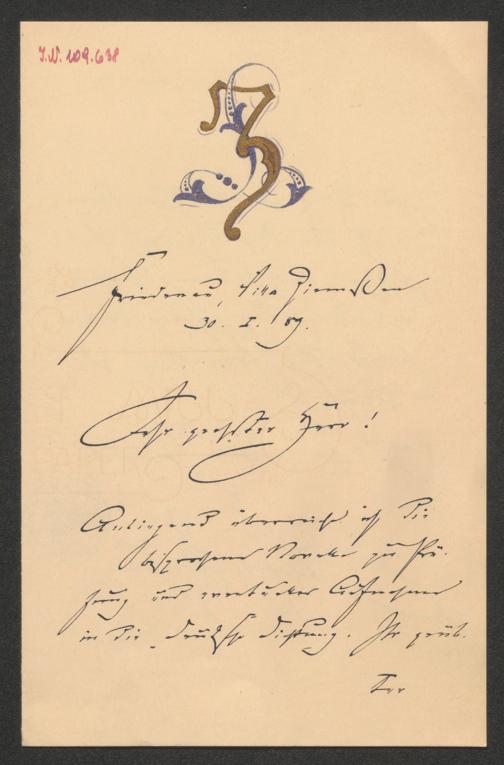 I.N. 109.638
Z
Friedenau, Villa Ziemssen
30. I. 89.
Sehr geehrter Herr!
Anliegend überreiche ich die
besprochene Novelle zu Prü-
fung und eventueller Aufnahme
in die „Deutsche Dichtung. Ihr